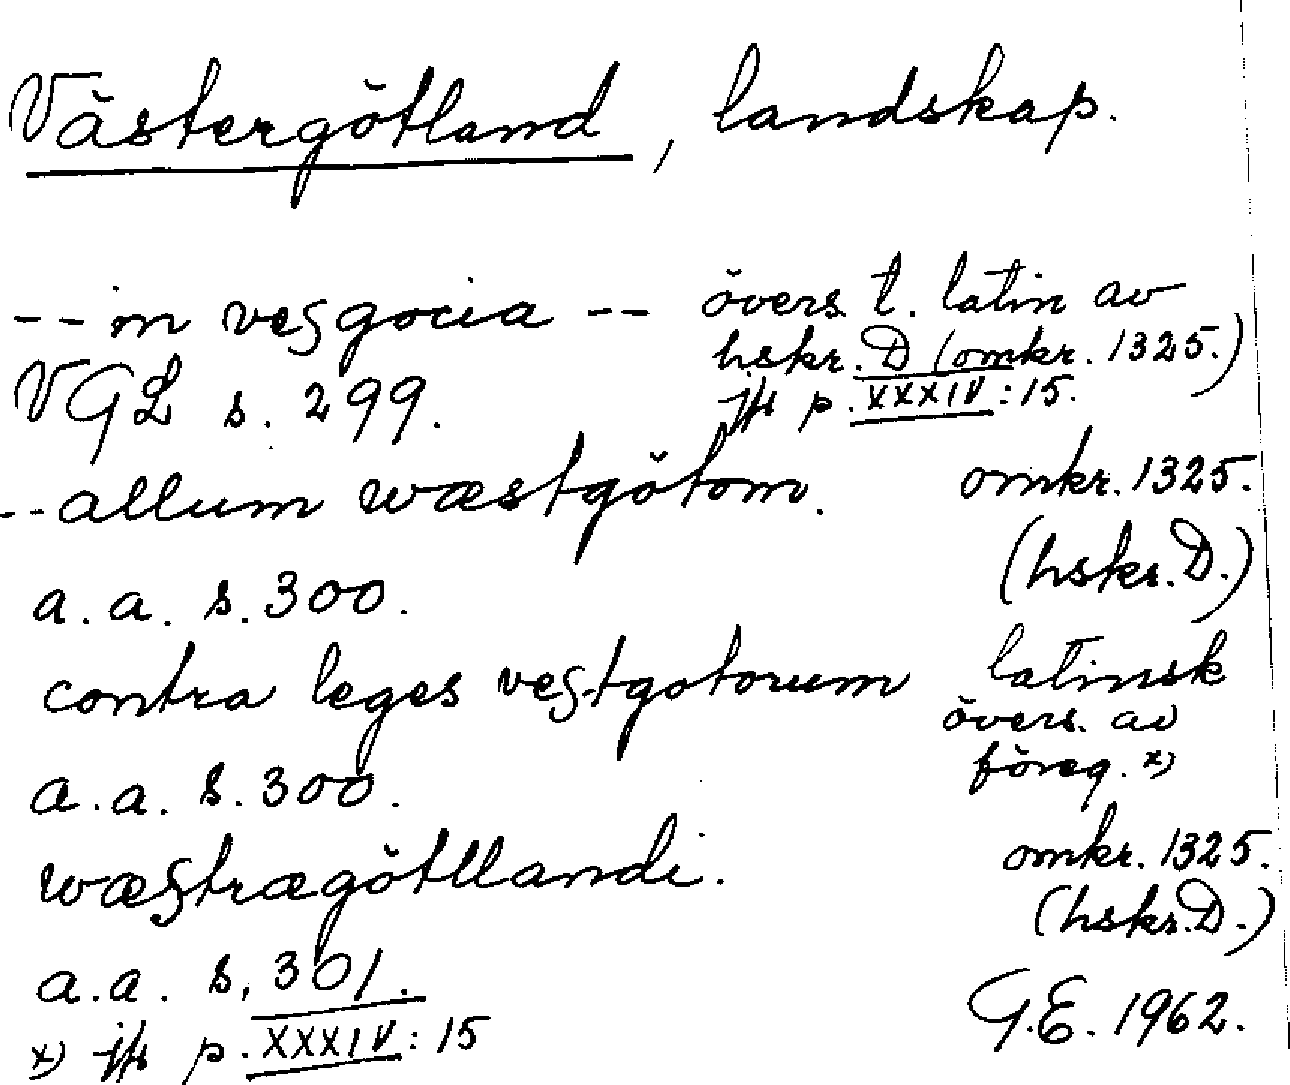 Västergötland, landskap.
-- in vesgocia -- övers. t. latin av
hskr. D (omkr. 1325.)
VGL s. 299. jfr p. XXXIV:15.
-- allum wæstgötom. omkr. 1325.
(hskr. D.)
a.a. s. 300.
contra leges vestgotorum latinsk
övers. av
föreg. x)
a.a. s. 300.
wæstrægötllandi. omkr. 1325.
(hskr. D.)
a.a. s, 301.
G.E. 1962.
x) jfr p. XXXIV:15